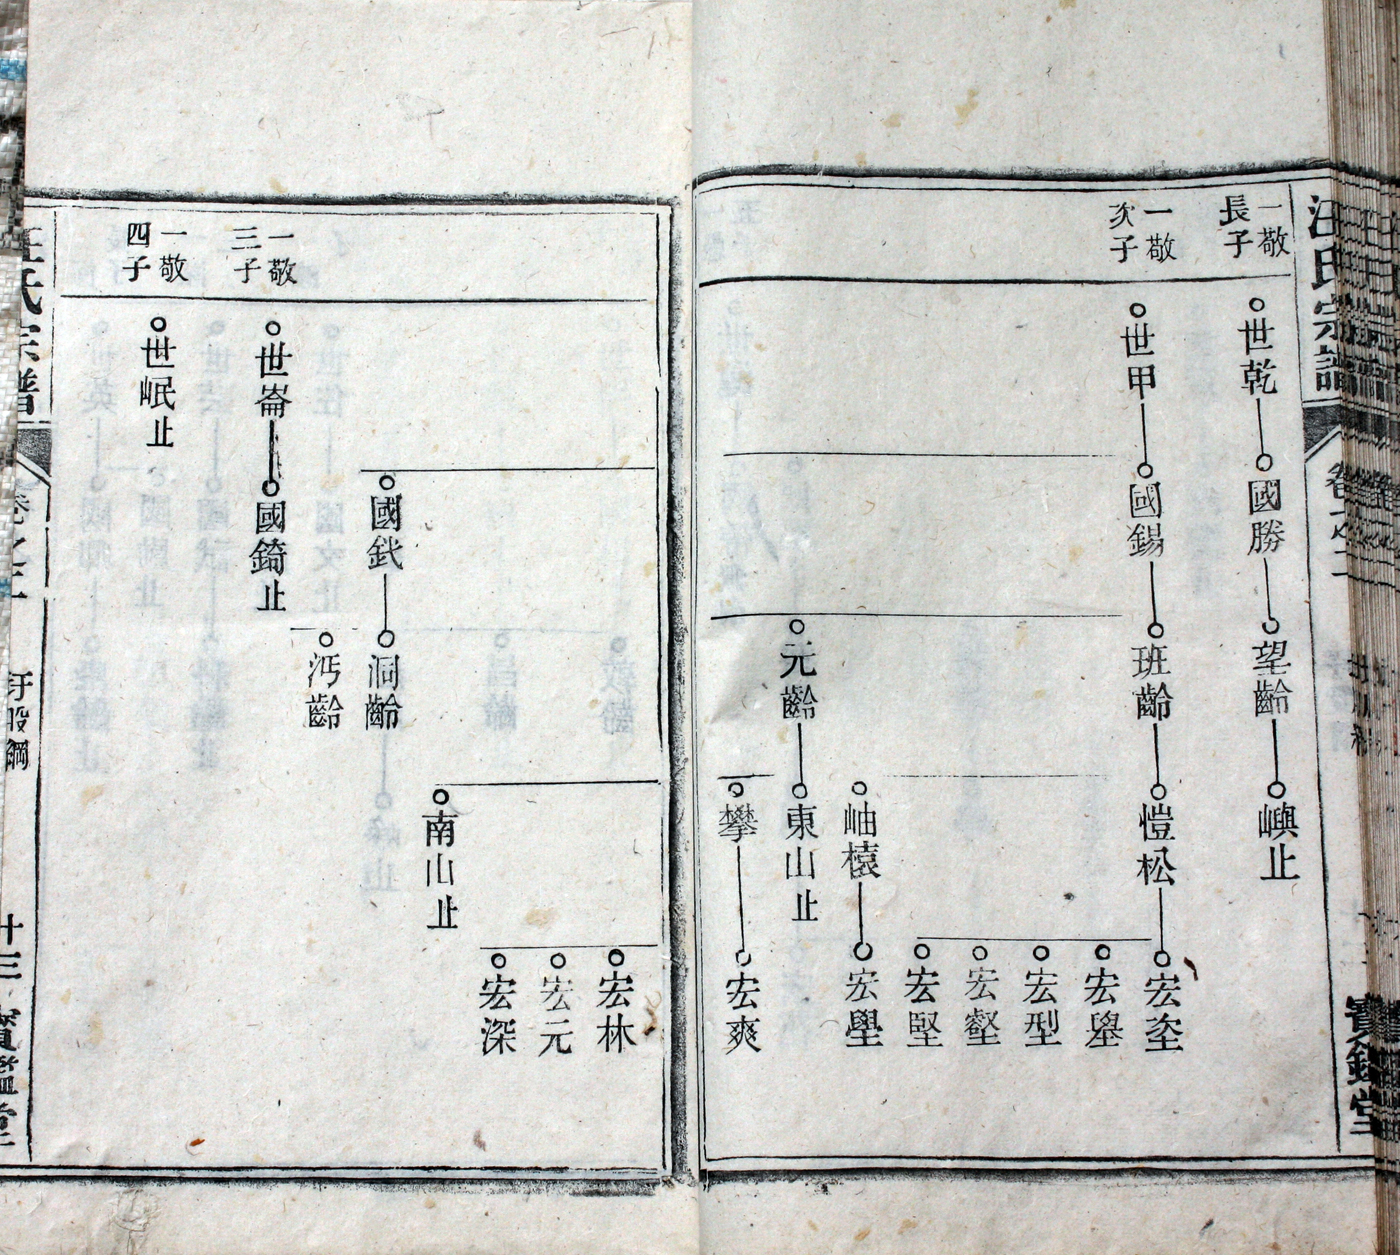 汪氏宗譜
卷之二
寶鑑堂
一敬
長子
世乾
國勝
望齡
嶼止
一敬
次子
世甲
國錫
班齡
愷松
宏垄
宏舉
宏型
宏壑
宏堅
岫檯
宏壆
元齡
東山止
攀
宏爽
一敬
三子
世崙
國錡止
國釴
洞齡
沔齡
南山止
宏林
宏元
宏深
一敬
四子
世岷止
汪氏宗譜
卷之二
圩股鋼
十三
寶鑑堂